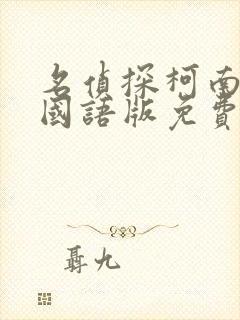 名偵探柯南
國語版免費
聶九